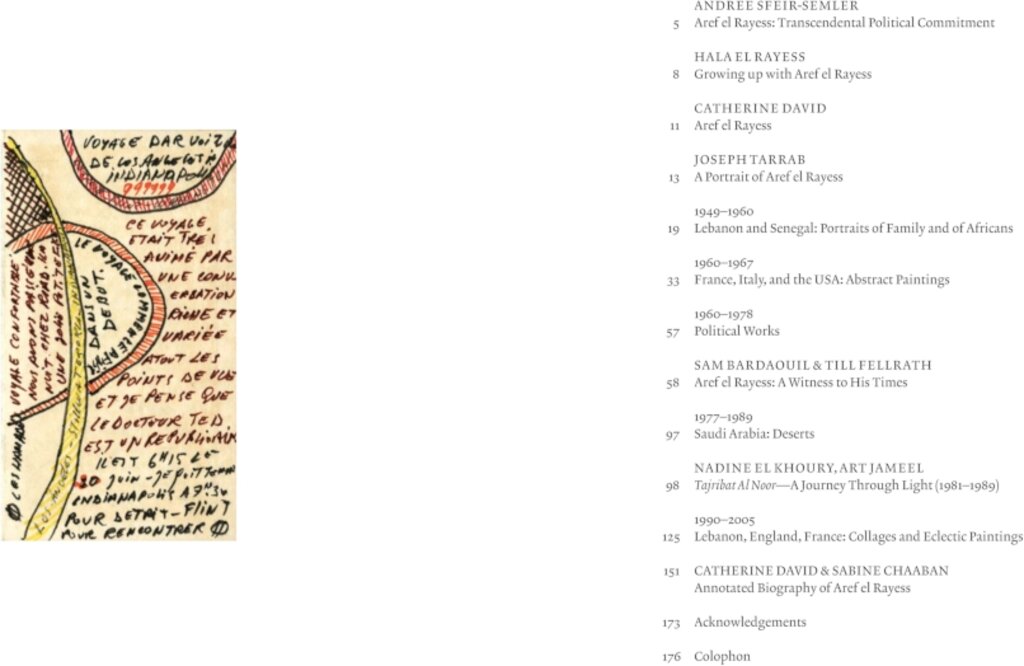 VOYAGE PAR VOIE
DE LOS ANGELES A
INDIANAPOLI
999999
CE VOYAGE
ETAIT TRES
ANIMÉ PAR
UNE CONV
ERSATION
RICHE ET
VARIÉE
ATOUT LES
POINTS DE VUE
ET JE PENSE QUE
LE DOCTEUR TED
EST UN REPUBLICAIN
IL EST 6H15 LE
30 JUIN - JE QUITTE
INDIANNAPOLIS A 7H.30
POUR DETROIT - FLINT
POUR RENCONTRER
LE VOYAGE COMMENCE
DANS UN
DEBUT.
VOYAGE CONFORTABLE
NOUS AVONS PASSÉ
NUIT CHEZ
UNE
LOS ANGELES
ANDRÉE SFEIR-SEMLER
5 Aref el Rayess: Transcendental Political Commitment
HALA EL RAYESS
8 Growing up with Aref el Rayess
CATHERINE DAVID
11 Aref el Rayess
JOSEPH TARRAB
13 A Portrait of Aref el Rayess
1949–1960
19 Lebanon and Senegal: Portraits of Family and of Africans
1960–1967
33 France, Italy, and the USA: Abstract Paintings
1960–1978
57 Political Works
SAM BARDAOUIL & TILL FELLRATH
58 Aref el Rayess: A Witness to His Times
1977–1989
97 Saudi Arabia: Deserts
NADINE EL KHOURY, ART JAMEEL
98 Tajribat Al Noor—A Journey Through Light (1981–1989)
1990–2005
125 Lebanon, England, France: Collages and Eclectic Paintings
151 CATHERINE DAVID & SABINE CHAABAN
Annotated Biography of Aref el Rayess
173 Acknowledgements
176 Colophon